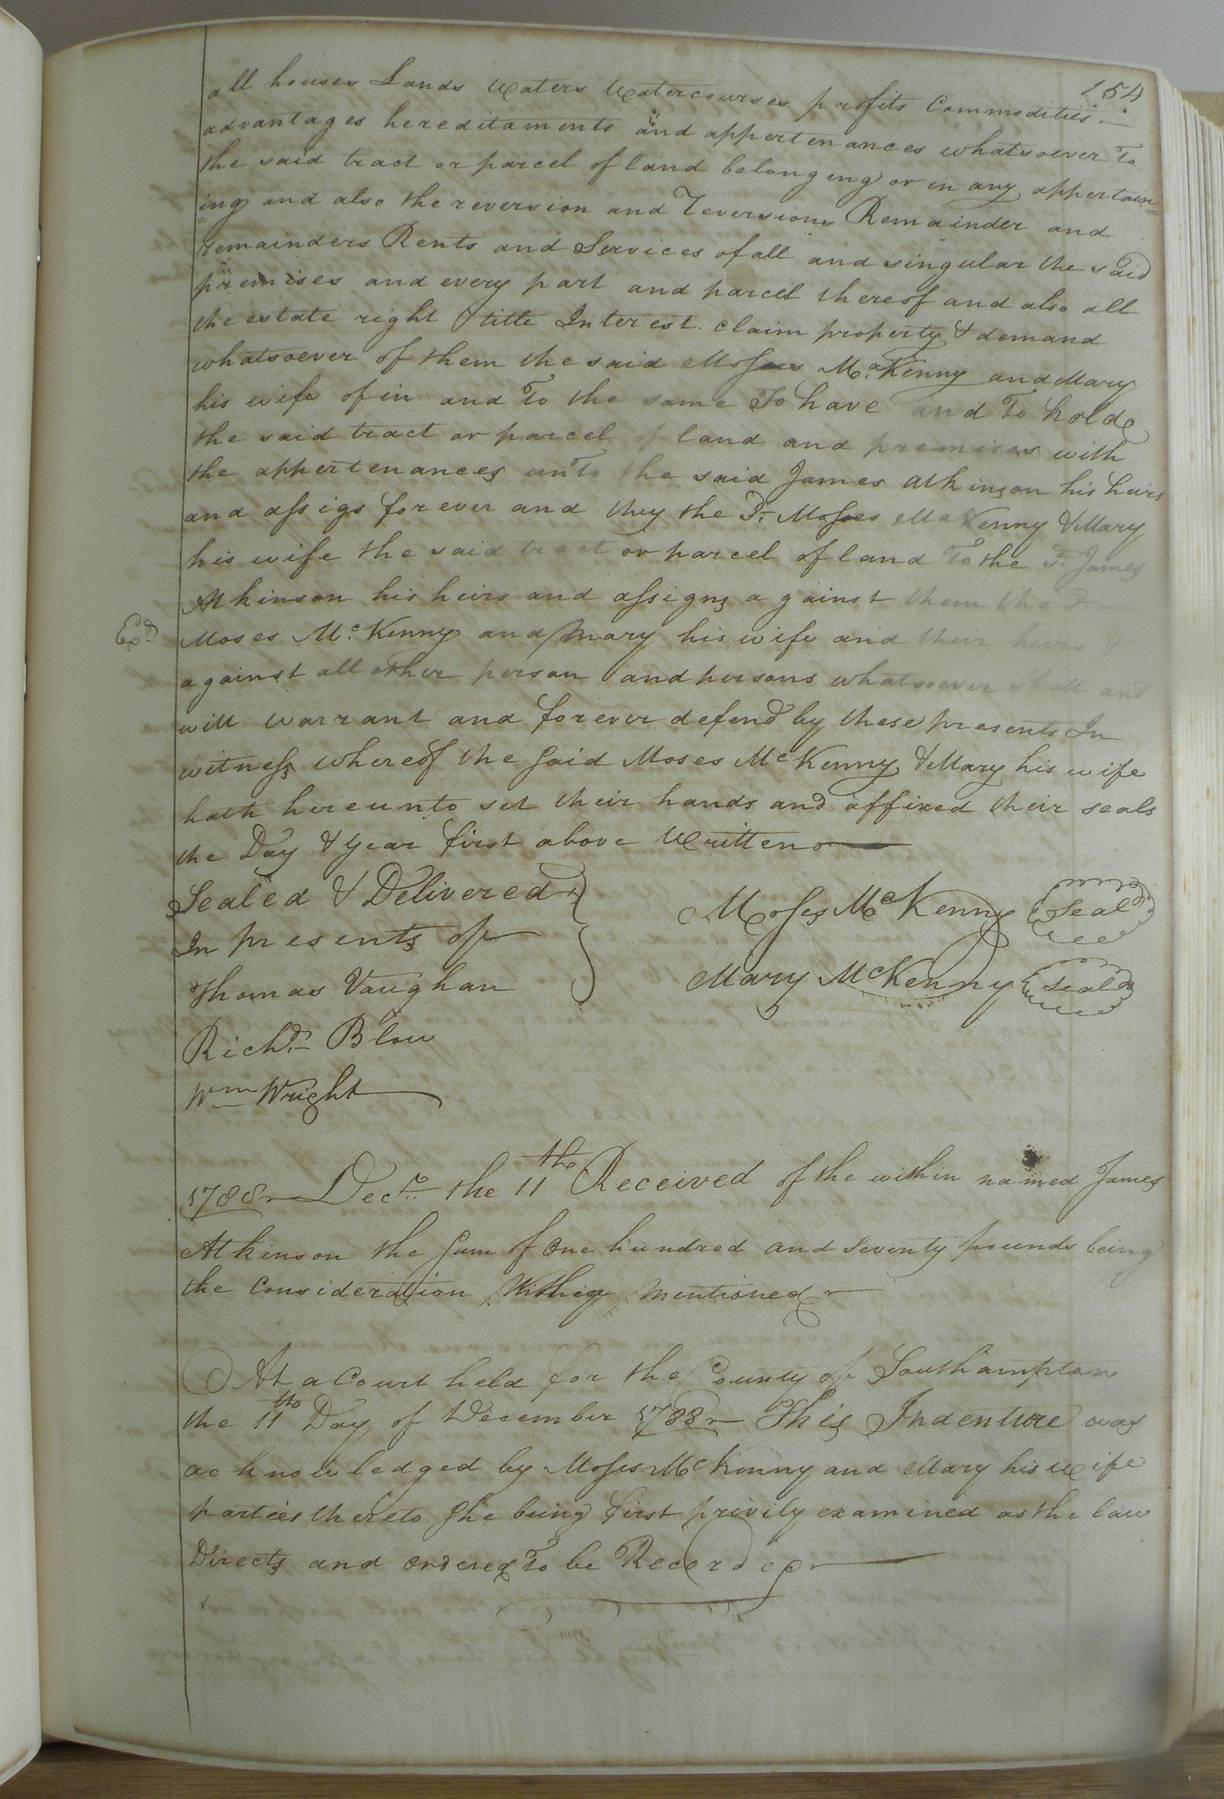 154
all houses Lands waters watercourses profits Commodities
advantages hereditaments and appertenances whatsoever To
the said tract or parcel of land belonging or in any appertain=
=ing and also the reversion and Reversions Remainder and
remainders Rents and Services of all and singular the said
premises and every part and parcel thereof and also all
the estate right title Interest claim property & demand
whatsoever of them the said Moses McKenny and Mary
his wife of in and To the same To have and To hold
the said tract or parcel of land and premises with
the appertenances unto the said James Atkinson his heirs
and assigs forever and they the Sd. Moses McKenny & Mary
his wife the said tract or parcel of land To the sd. James
Atkinson his heirs and assigns against them the Sd.
Exd. Moses McKenny and Mary his wife and their heirs &
against all other person and persons whatsoever shall and
will warrant and forever defend by these presents In
witness whereof the said Moses McKenny & Mary his wife
hath hereunto set their hands and affixed their seals
the Day & year first above Written
Sealed & Delivered
In presents of
Moses McKenny Seal
Thomas Vaughan
Mary McKenny Seal
Richd. Blow
Wm Wright
1788 Decr. the 11th Received of the within named James
Atkinson the Sum of One hundred and Seventy pounds being
the Consideration Within mentioned
At a Court held for the County of Southampton
the 11th Day of December 1788 This Indenture was
acknowledged by Moses McKenny and Mary his wife
parties thereto She being first privily examined as the law
Directs and ordered To be Recorded